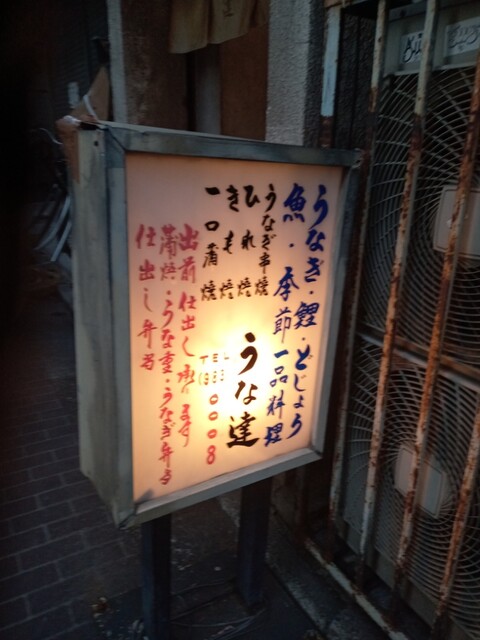 うなぎ・鯉・どじょう
魚・季節一品料理
うなぎ串焼
ひれ焼
きも焼
一口蒲焼
うな達
TEL
0008
出前仕出し承ります
蒲焼・うな重・うなぎ弁当
仕出し弁当